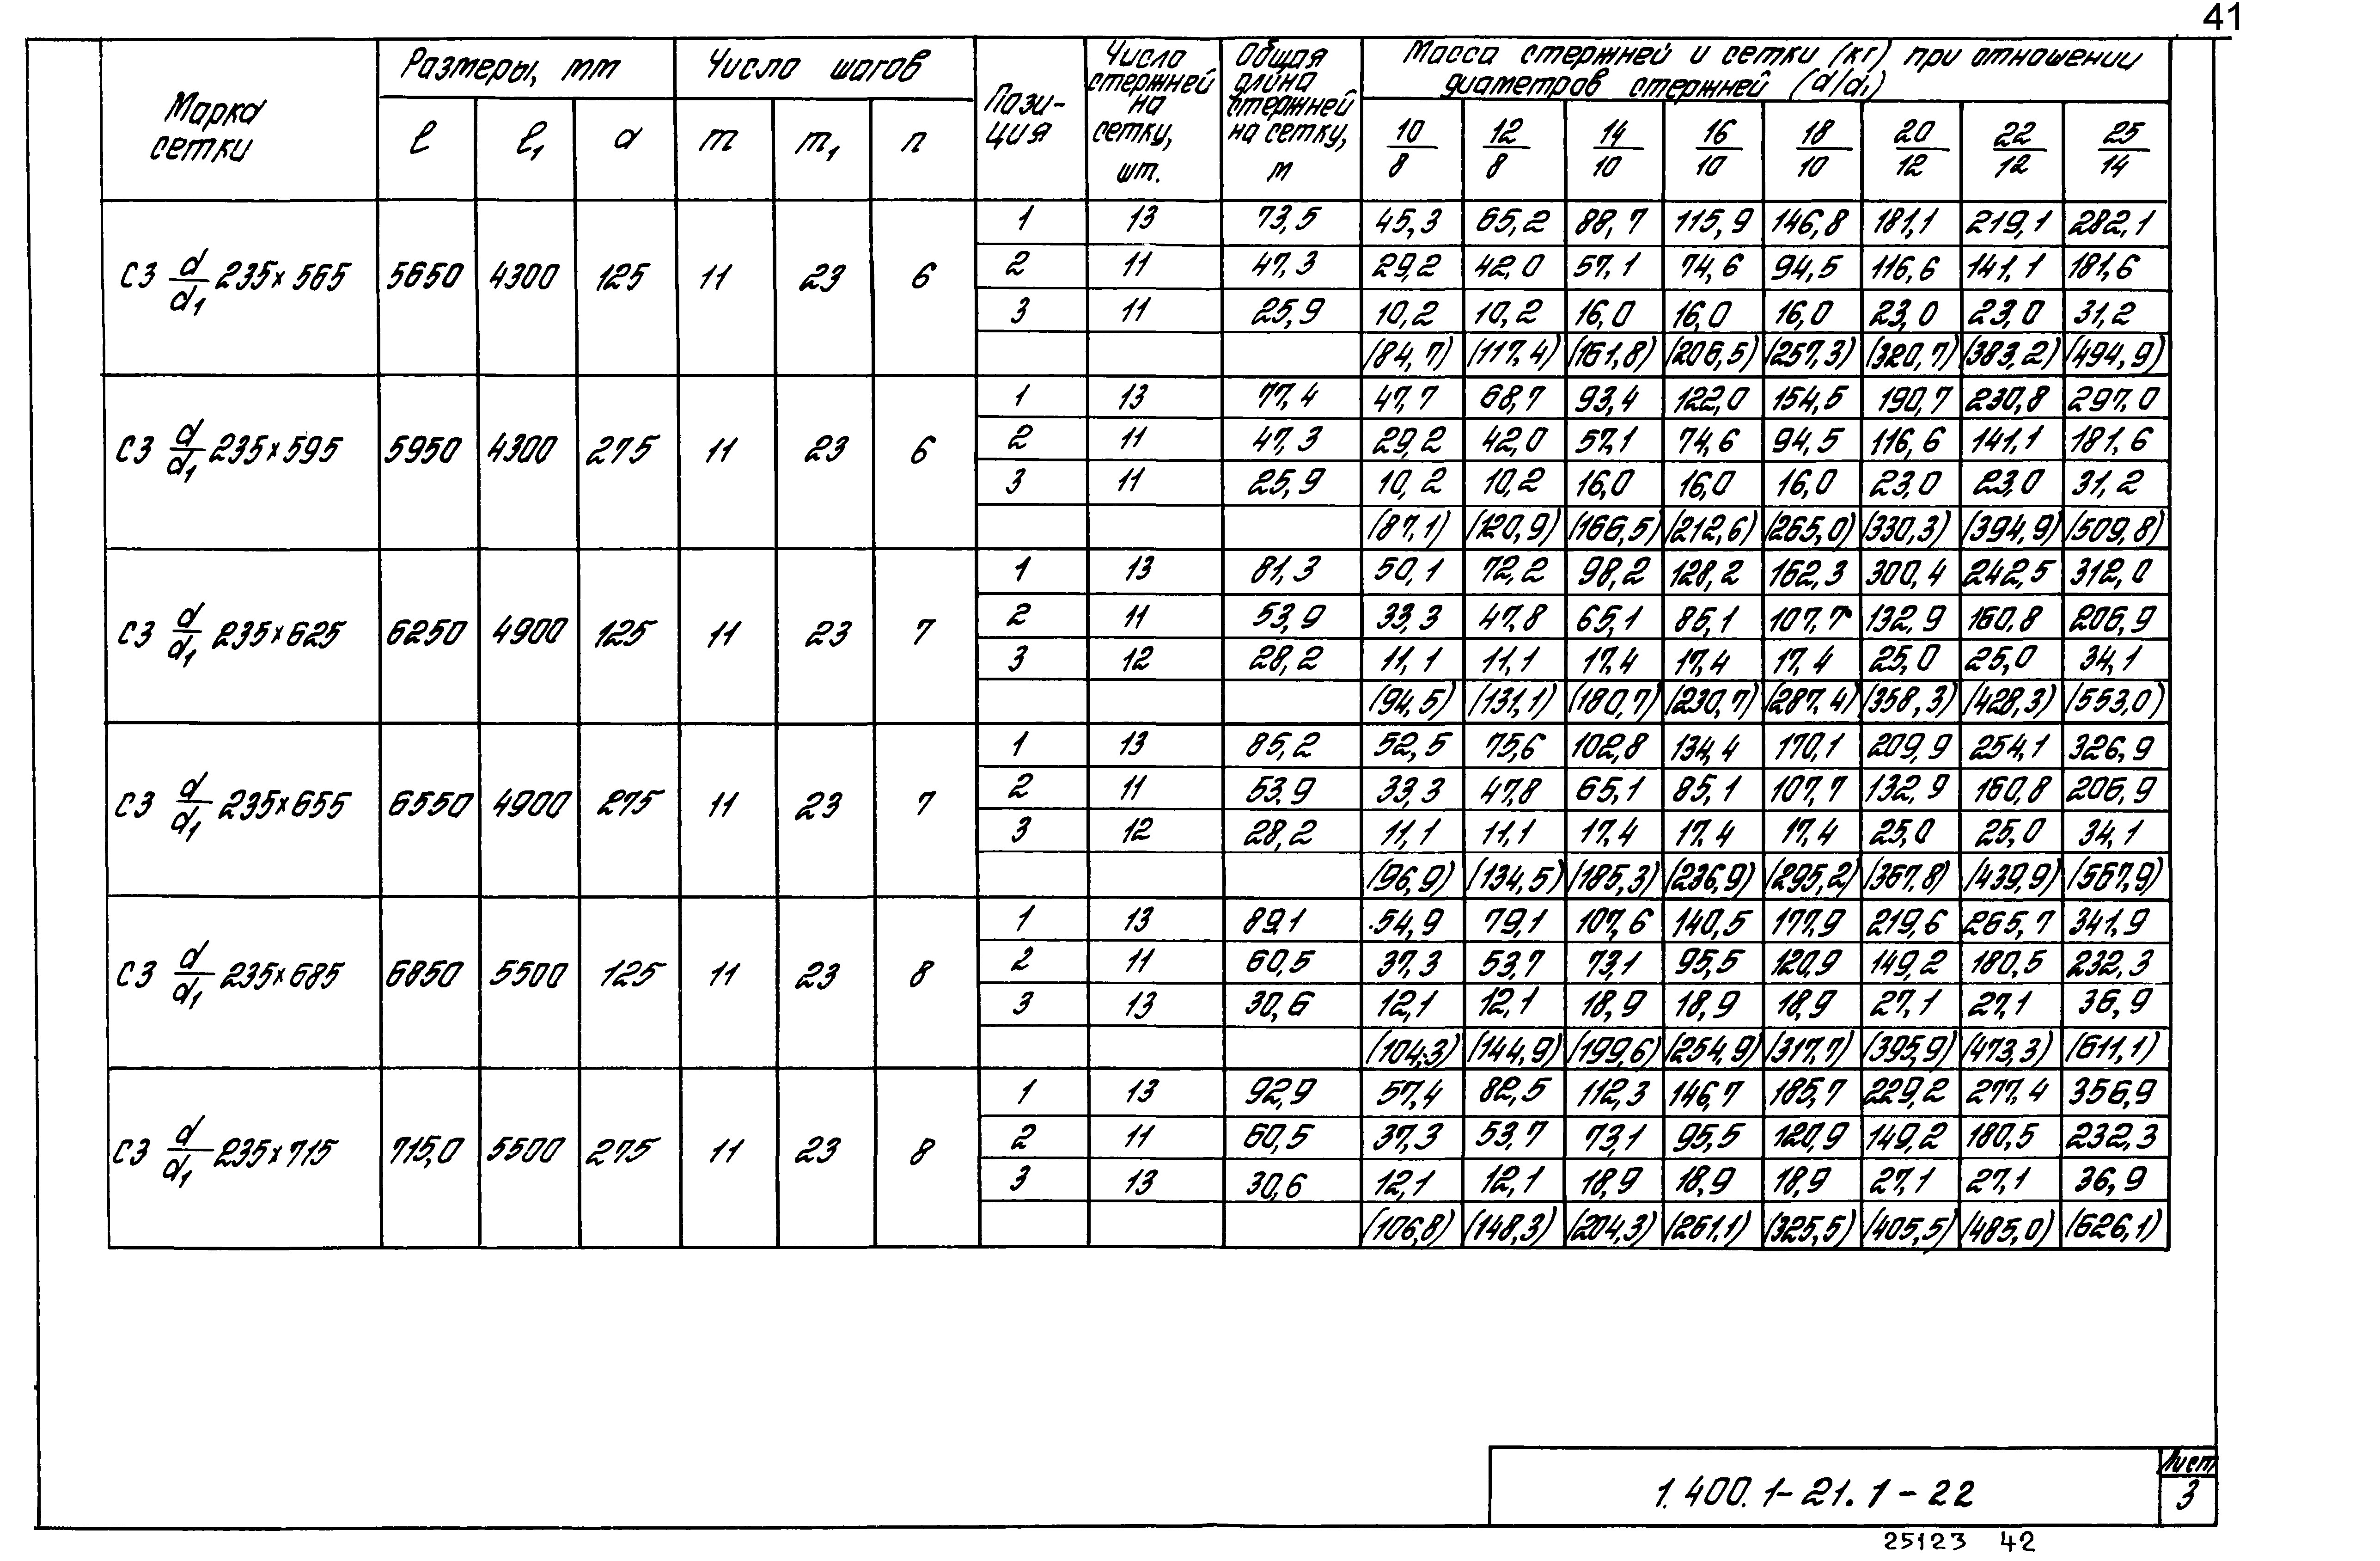 41
Марка сетки | Размеры, мм | Число шагов | Пози-ция | Число стержней на сетку, шт. | Общая длина стержней на сетку, м | Масса стержней и сетки (кг) при отношении диаметров стержней (d/d₁)
ℓ | ℓ₁ | а | m | m₁ | n | 10/8 | 12/8 | 14/10 | 16/10 | 18/10 | 20/12 | 22/12 | 25/14
С3 d/d₁ 235×565 | 5650 | 4300 | 125 | 11 | 23 | 6
1 | 13 | 73,5 | 45,3 | 65,2 | 88,7 | 115,9 | 146,8 | 181,1 | 219,1 | 282,1
2 | 11 | 47,3 | 29,2 | 42,0 | 57,1 | 74,6 | 94,5 | 116,6 | 141,1 | 181,6
3 | 11 | 25,9 | 10,2 | 10,2 | 16,0 | 16,0 | 16,0 | 23,0 | 23,0 | 31,2
(84,7) | (117,4) | (161,8) | (206,5) | (257,3) | (320,7) | (383,2) | (494,9)
С3 d/d₁ 235×595 | 5950 | 4300 | 275 | 11 | 23 | 6
1 | 13 | 77,4 | 47,7 | 68,7 | 93,4 | 122,0 | 154,5 | 190,7 | 230,8 | 297,0
2 | 11 | 47,3 | 29,2 | 42,0 | 57,1 | 74,6 | 94,5 | 116,6 | 141,1 | 181,6
3 | 11 | 25,9 | 10,2 | 10,2 | 16,0 | 16,0 | 16,0 | 23,0 | 23,0 | 31,2
(87,1) | (120,9) | (166,5) | (212,6) | (265,0) | (330,3) | (394,9) | (509,8)
С3 d/d₁ 235×625 | 6250 | 4900 | 125 | 11 | 23 | 7
1 | 13 | 81,3 | 50,1 | 72,2 | 98,2 | 128,2 | 162,3 | 300,4 | 242,5 | 312,0
2 | 11 | 53,9 | 33,3 | 47,8 | 65,1 | 85,1 | 107,7 | 132,9 | 160,8 | 206,9
3 | 12 | 28,2 | 11,1 | 11,1 | 17,4 | 17,4 | 17,4 | 25,0 | 25,0 | 34,1
(94,5) | (131,1) | (180,7) | (230,7) | (287,4) | (358,3) | (428,3) | (553,0)
С3 d/d₁ 235×655 | 6550 | 4900 | 275 | 11 | 23 | 7
1 | 13 | 85,2 | 52,5 | 75,6 | 102,8 | 134,4 | 170,1 | 209,9 | 254,1 | 326,9
2 | 11 | 53,9 | 33,3 | 47,8 | 65,1 | 85,1 | 107,7 | 132,9 | 160,8 | 206,9
3 | 12 | 28,2 | 11,1 | 11,1 | 17,4 | 17,4 | 17,4 | 25,0 | 25,0 | 34,1
(96,9) | (134,5) | (185,3) | (236,9) | (295,2) | (367,8) | (439,9) | (567,9)
С3 d/d₁ 235×685 | 6850 | 5500 | 125 | 11 | 23 | 8
1 | 13 | 89,1 | 54,9 | 79,1 | 107,6 | 140,5 | 177,9 | 219,6 | 265,7 | 341,9
2 | 11 | 60,5 | 37,3 | 53,7 | 73,1 | 95,5 | 120,9 | 149,2 | 180,5 | 232,3
3 | 13 | 30,6 | 12,1 | 12,1 | 18,9 | 18,9 | 18,9 | 27,1 | 27,1 | 36,9
(104,3) | (144,9) | (199,6) | (254,9) | (317,7) | (395,9) | (473,3) | (611,1)
С3 d/d₁ 235×715 | 715,0 | 5500 | 275 | 11 | 23 | 8
1 | 13 | 92,9 | 57,4 | 82,5 | 112,3 | 146,7 | 185,7 | 229,2 | 277,4 | 356,9
2 | 11 | 60,5 | 37,3 | 53,7 | 73,1 | 95,5 | 120,9 | 149,2 | 180,5 | 232,3
3 | 13 | 30,6 | 12,1 | 12,1 | 18,9 | 18,9 | 18,9 | 27,1 | 27,1 | 36,9
(106,8) | (148,3) | (204,3) | (261,1) | (325,5) | (405,5) | (485,0) | (626,1)
1.400.1-21.1-22
Лист
3
25123 42